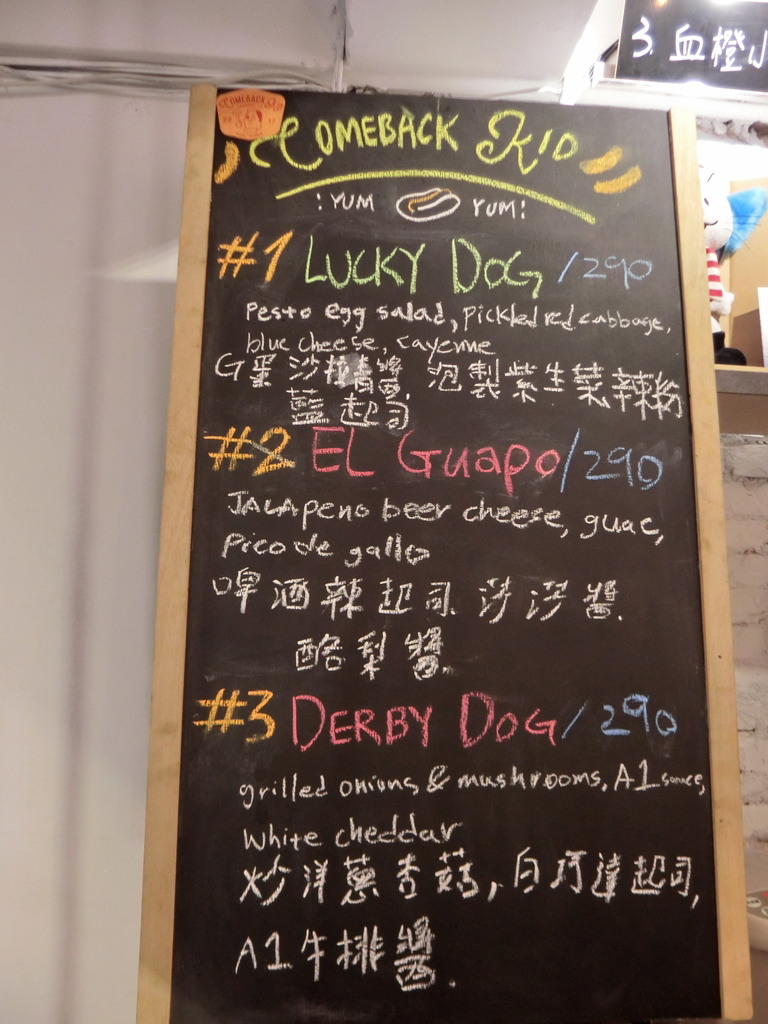 3. 血橙
COMEBACK KID
COMEBACK KID
! YUM YUM!
#1 LUCKY DOG /290
Pesto egg salad, pickled red cabbage,
blue cheese, cayenne
G蛋沙拉青醬 泡製紫生菜辣粉
藍起司
#2 EL Guapo/290
JALAPENO beer cheese, guac,
Pico de gallo
啤酒辣起司 莎莎醬.
酪梨醬.
#3 DERBY DOG / 290
grilled onions & mushrooms, A1 sauce,
White cheddar
炒洋蔥杏菇, 白巧達起司,
A1牛排醬.